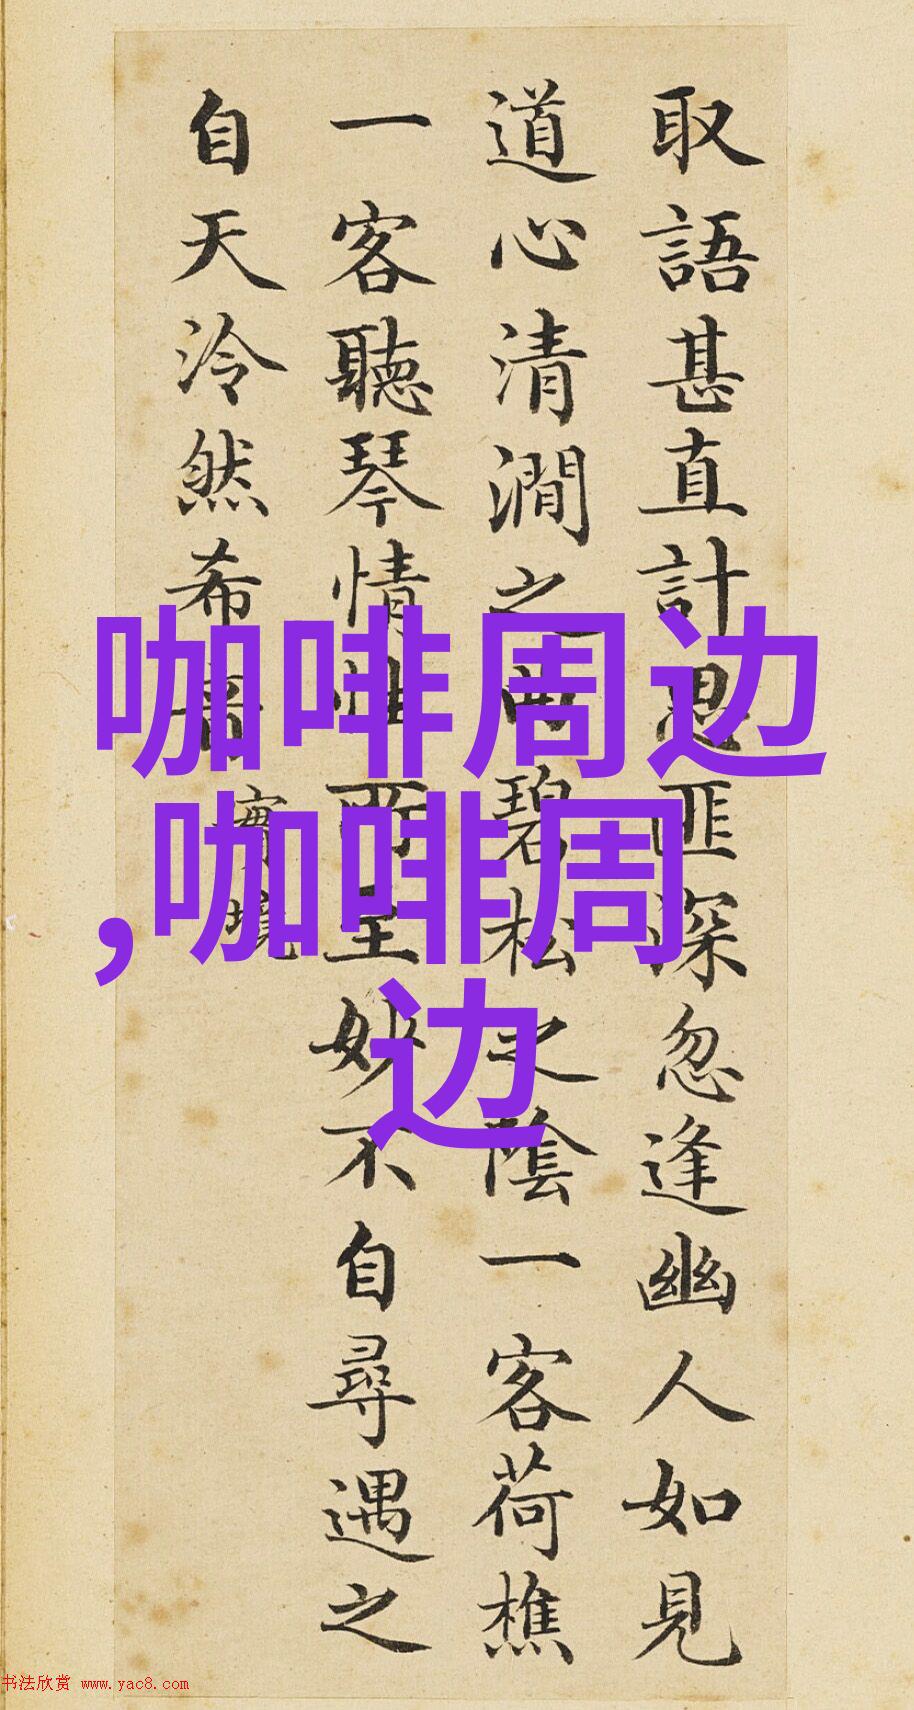 取語甚直計思匪深忽逢幽人如見
道心清澗之曲碧松之陰一客荷樵
一客聽琴情性所至妙不自尋遇之
自天泠然希音
實境
咖啡周边
,咖啡周
边
书法欣赏 www.yac8.com